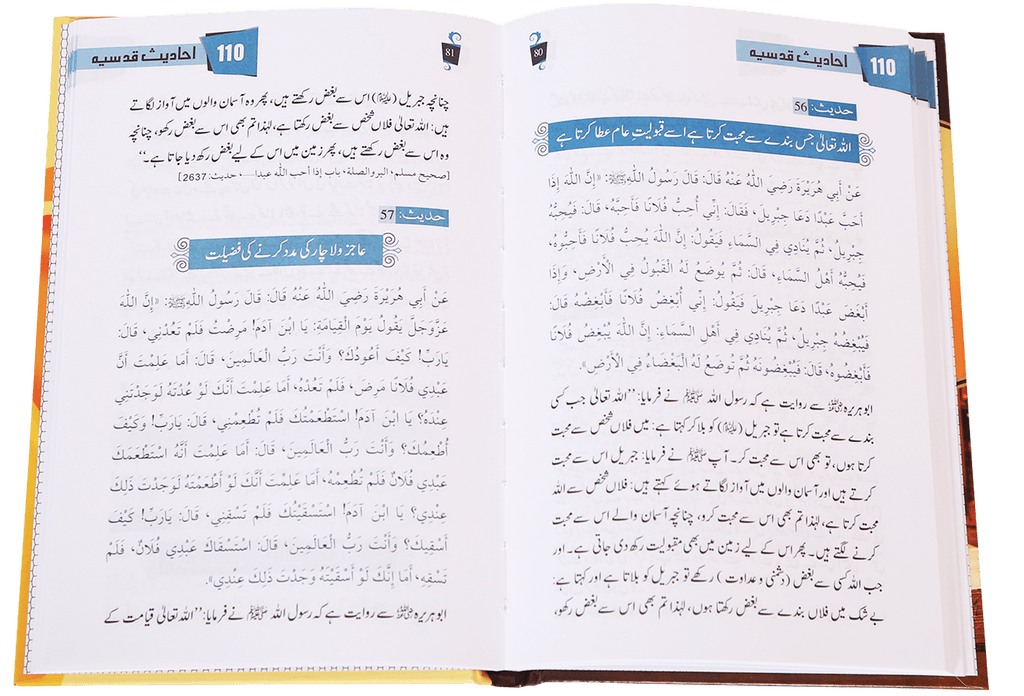 110 احادیث قدسیہ
80
حدیث: 56
اللہ تعالیٰ جس بندے سے محبت کرتا ہے اسے قبولیتِ عام عطا کرتا ہے
عَنْ أَبِي هُرَيْرَةَ رَضِيَ اللَّهُ عَنْهُ قَالَ: قَالَ رَسُولُ اللَّهِ ﷺ: «إِنَّ اللَّهَ إِذَا
أَحَبَّ عَبْدًا دَعَا جِبْرِيلَ، فَقَالَ: إِنِّي أُحِبُّ فُلَانًا فَأَحِبَّهُ، قَالَ: فَيُحِبُّهُ
جِبْرِيلُ، ثُمَّ يُنَادِي فِي السَّمَاءِ فَيَقُولُ: إِنَّ اللَّهَ يُحِبُّ فُلَانًا فَأَحِبُّوهُ،
فَيُحِبُّهُ أَهْلُ السَّمَاءِ، قَالَ: ثُمَّ يُوضَعُ لَهُ الْقَبُولُ فِي الْأَرْضِ، وَإِذَا
أَبْغَضَ عَبْدًا دَعَا جِبْرِيلَ فَيَقُولُ: إِنِّي أُبْغِضُ فُلَانًا فَأَبْغِضْهُ قَالَ:
فَيُبْغِضُهُ جِبْرِيلُ، ثُمَّ يُنَادِي فِي أَهْلِ السَّمَاءِ: إِنَّ اللَّهَ يُبْغِضُ فُلَانًا
فَأَبْغِضُوهُ، قَالَ: فَيُبْغِضُونَهُ ثُمَّ تُوضَعُ لَهُ الْبَغْضَاءُ فِي الْأَرْضِ».
ابو ہریرہ ؓ سے روایت ہے کہ رسول اللہ ﷺ نے فرمایا: ’’اللہ تعالیٰ جب کسی
بندے سے محبت کرتا ہے تو جبریل (علیہ السلام) کو بلا کر کہتا ہے: میں فلاں شخص سے محبت
کرتا ہوں، تو بھی اس سے محبت کر۔ آپ ﷺ نے فرمایا: جبریل اس سے محبت
کرتے ہیں اور آسمان والوں میں آواز لگاتے ہوئے کہتے ہیں: فلاں شخص سے اللہ
محبت کرتا ہے، لہٰذا تم بھی اس سے محبت کرو، چنانچہ آسمان والے اس سے محبت
کرنے لگتے ہیں۔ پھر اس کے لیے زمین میں بھی مقبولیت رکھ دی جاتی ہے۔ اور
جب اللہ کسی سے بغض (دشمنی و عداوت) رکھے تو جبریل کو بلاتا ہے اور کہتا ہے:
بے شک میں فلاں بندے سے بغض رکھتا ہوں، لہٰذا تم بھی اس سے بغض رکھو،
110 احادیث قدسیہ
81
چنانچہ جبریل (علیہ السلام) اس سے بغض رکھتے ہیں، پھر وہ آسمان والوں میں آواز لگاتے
ہیں: اللہ تعالیٰ فلاں شخص سے بغض رکھتا ہے، لہٰذا تم بھی اس سے بغض رکھو، چنانچہ
وہ اس سے بغض رکھتے ہیں، پھر زمین میں اس کے لیے بغض رکھ دیا جاتا ہے۔‘‘
[صحیح مسلم، البر والصلة، باب إذا أحب الله عبدا....، حدیث: 2637]
حدیث: 57
عاجز و لاچار کی مدد کرنے کی فضیلت
عَنْ أَبِي هُرَيْرَةَ رَضِيَ اللَّهُ عَنْهُ قَالَ: قَالَ رَسُولُ اللَّهِ ﷺ: «إِنَّ اللَّهَ
عَزَّوَجَلَّ يَقُولُ يَوْمَ الْقِيَامَةِ: يَا ابْنَ آدَمَ! مَرِضْتُ فَلَمْ تَعُدْنِي، قَالَ:
يَارَبِّ! كَيْفَ أَعُودُكَ؟ وَأَنْتَ رَبُّ الْعَالَمِينَ، قَالَ: أَمَا عَلِمْتَ أَنَّ
عَبْدِي فُلَانًا مَرِضَ، فَلَمْ تَعُدْهُ، أَمَا عَلِمْتَ أَنَّكَ لَوْ عُدْتَهُ لَوَجَدْتَنِي
عِنْدَهُ؟ يَا ابْنَ آدَمَ! اسْتَطْعَمْتُكَ فَلَمْ تُطْعِمْنِي، قَالَ: يَارَبِّ! وَكَيْفَ
أُطْعِمُكَ؟ وَأَنْتَ رَبُّ الْعَالَمِينَ، قَالَ: أَمَا عَلِمْتَ أَنَّهُ اسْتَطْعَمَكَ
عَبْدِي فُلَانٌ فَلَمْ تُطْعِمْهُ، أَمَا عَلِمْتَ أَنَّكَ لَوْ أَطْعَمْتَهُ لَوَجَدْتَ ذَلِكَ
عِنْدِي؟ يَا ابْنَ آدَمَ! اسْتَسْقَيْتُكَ فَلَمْ تَسْقِنِي، قَالَ: يَارَبِّ! كَيْفَ
أَسْقِيكَ؟ وَأَنْتَ رَبُّ الْعَالَمِينَ، قَالَ: اسْتَسْقَاكَ عَبْدِي فُلَانٌ، فَلَمْ
تَسْقِهِ، أَمَا إِنَّكَ لَوْ أَسْقَيْتَهُ وَجَدْتَ ذَلِكَ عِنْدِي».
ابو ہریرہ ؓ سے روایت ہے کہ رسول اللہ ﷺ نے فرمایا: ’’اللہ تعالیٰ قیامت کے